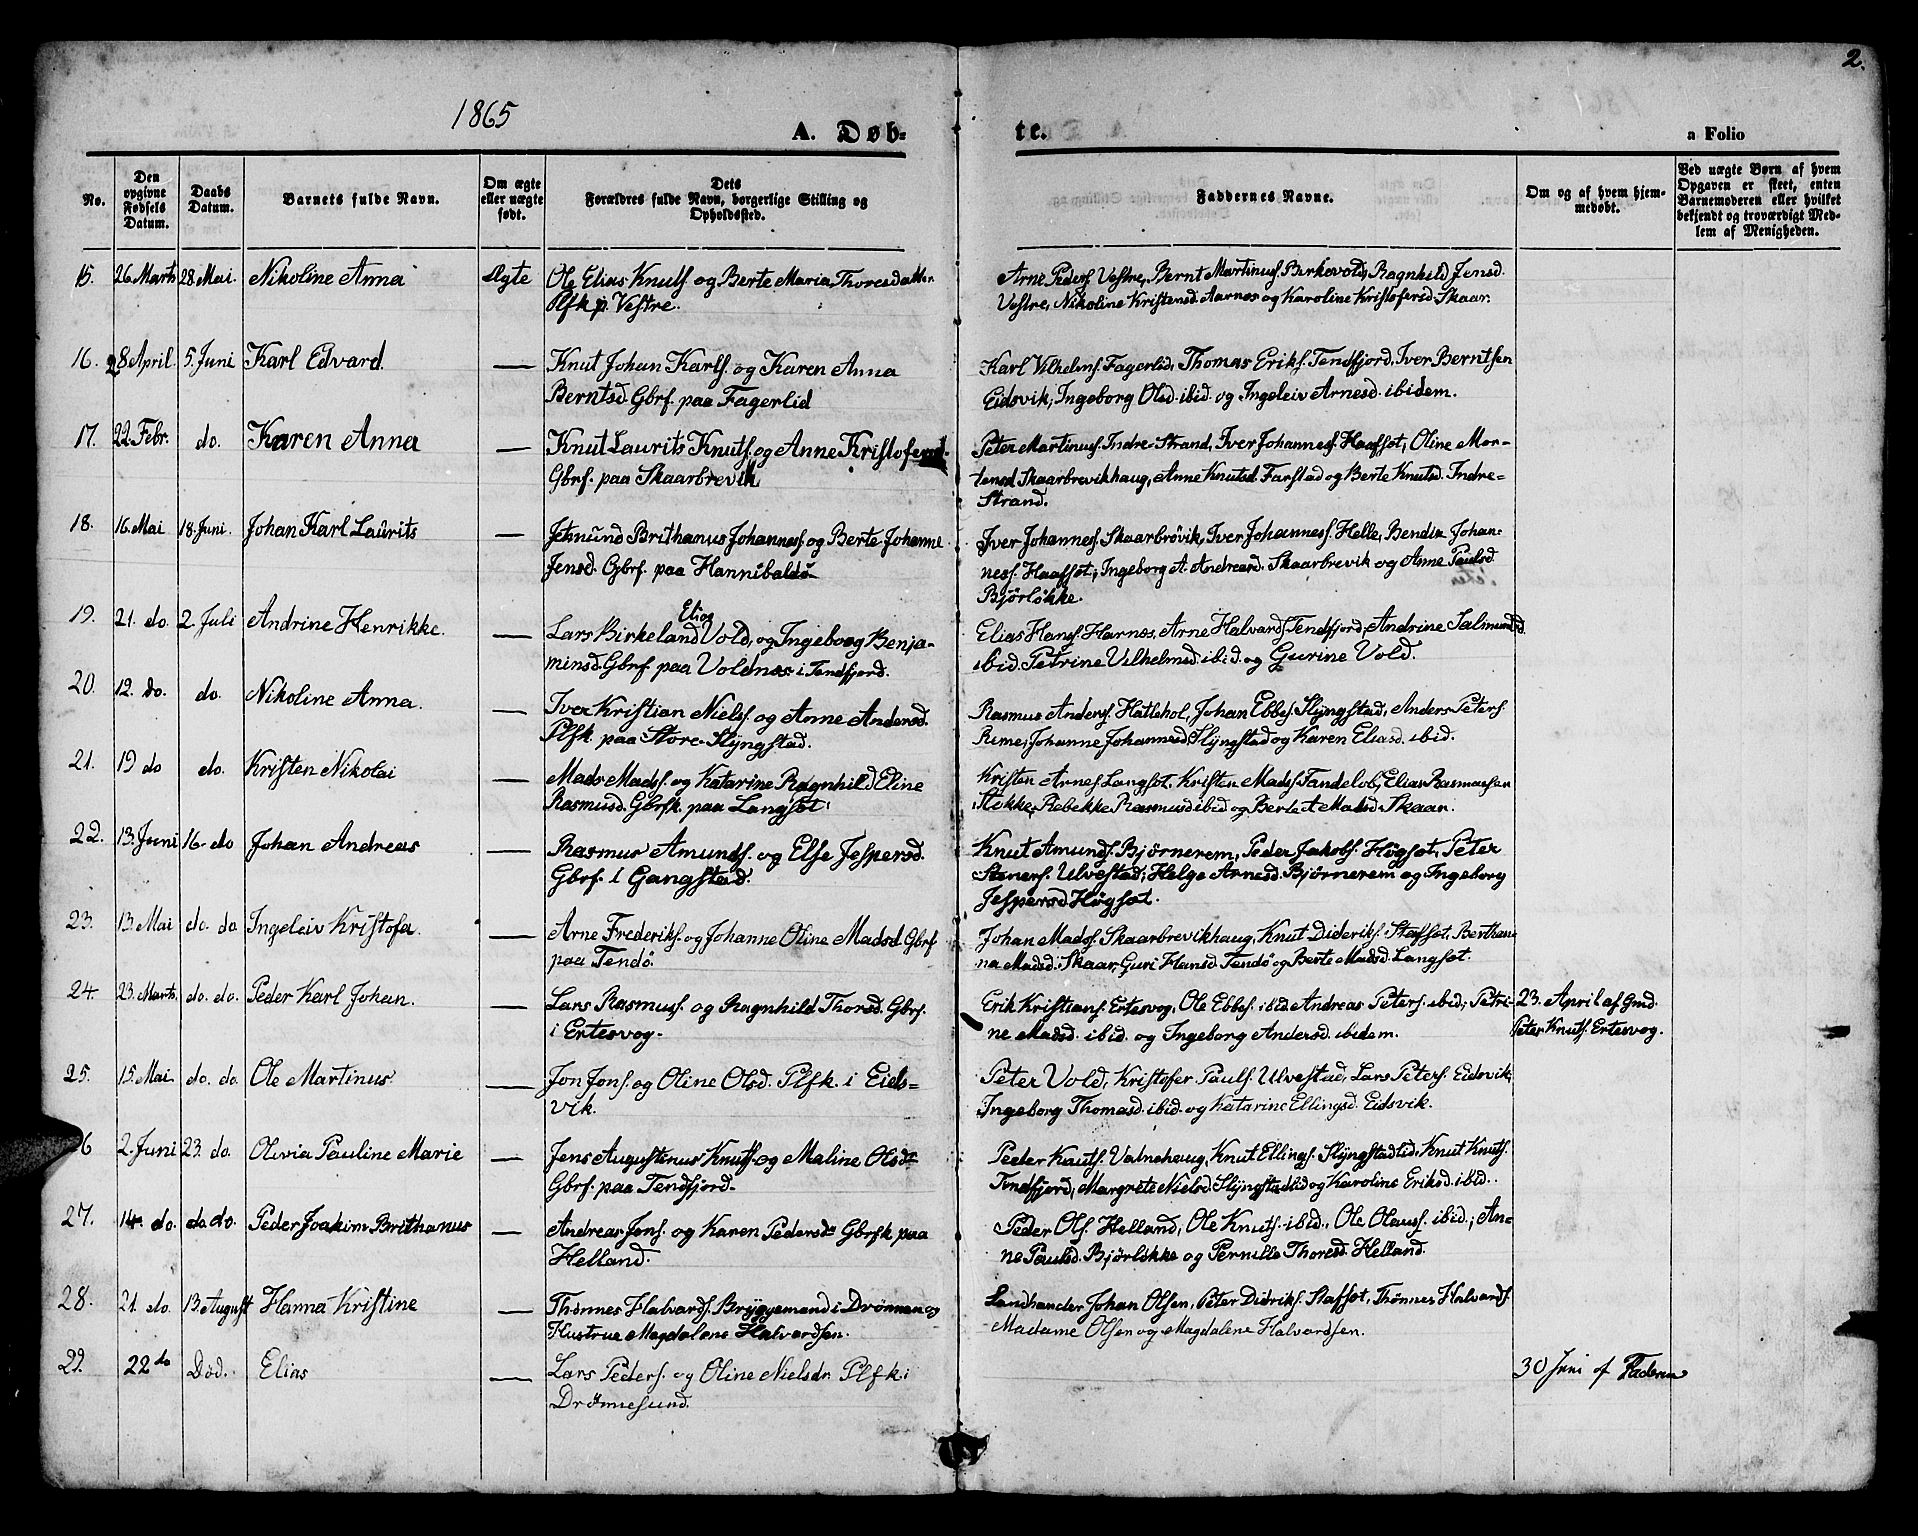 2.
1865
A. Døb-
te.
a Folio
No.
Den opgivne Fødsels Datum.
Daabs Datum.
Barnets fulde Navn.
Om ægte eller uægte født.
Dets Forældres fulde Navn, borgerlige Stilling og Opholdssted.
Faddernes Navne.
Om og af hvem hjemmedøbt.
Ved uægte Børn af hvem Opgaven er skeet, enten Barnemoderen eller hvilket bekjendt og troværdigt Medlem af Menigheden.
15. 26 Marts 28. Mai. Nikoline Anna Ægte Ole Elias Knuts og Berte Maria Thoresdatter Arne Peders. Vestre, Bernt Martinus. Birkevold, Ragnhild Jensd.
Plfk p. Vestre. Vestre, Nikoline Kristensd. Aarnes og Karoline Kristoferd. Skaar.
16. 28 April. 5. Juni Karl Edvard. — Knut Johan Karls. og Karen Anna Karl Vilhelms. Fagerlid, Thomas Eriks. Tendfjord, Iver Berntsen
Berntsd. Gbrf. paa Fagerlid Eidsvik, Ingeborg Olsd. ibid. og Ingeleiv Arnesd. ibidem.
17. 22. Febr. do. Karen Anna — Knut Laurits Knuts. og Anne Kristofersd. Peter Martinus. Indre-Strand, Iver Johanness. Haafsæt, Oline Mor-
Gbrf. paa Skaarbrevik tensd Skaarbrevikhaug, Anne Knutsd. Farstad og Berte Knutsd. Indre-
Strand.
18. 16. Mai 18. Juni. Johan Karl Laurits — Jetmund Brithanus Johanness. og Berte Johanne Iver Johanness. Skaarbrevik, Iver Johanness. Helle, Bendix Johan-
Jensd. Gbrf. paa Hannibalsø ness. Haafsæt, Ingeborg A. Andreasd. Skaarbrevik og Anne Paulsd
Bjørløkke.
19. 21. do. 2. Juli Andrine Henrikke. — Lars Birkeland Elias Vold, og Ingeborg Benja- Elias Hans. Harnes, Arne Halvards. Tendfjord, Andrine Salmundsd.
minsd. Gbrf. paa Voldnes i Tendfjord. ibid. Petrine Vilhelmsd. ibid. og Gurine Vold.
20. 12. do. do. Nikoline Anna. — Iver Kristian Niels. og Anne Andersd. Rasmus Anders. Hatlehol, Johan Ebbes. Slyngstad, Anders Peters.
Plfk. paa Store-Slyngstad. Rime, Johanne Johannesd. Slyngstad og Karen Eliasd. ibid.
21. 19 do do. Kristen Nikolai — Mads Mads. og Katarine Ragnhild Eline Kristen Arnes. Langsæt, Kristen Mads. Sandelob, Elias Rasmussen
Rasmusd. Gbrfk. paa Langsæt. Stokke, Rebekke Rasmusd ibid og Berte A Madsd. Skaar.
22. 13. Juni 16. do Johan Andreas — Rasmus Amunds. og Else Jespersd. Knut Amunds. Bjørnerem, Peder Jakobs. Høgsæt, Peter
Gbrf. i Gangstad. Steners. Ulvestad, Helge Arnesd. Bjørnerem og Ingeborg
Jespersd Høgsæt.
23. 13. Mai do. do. Ingeleiv Kristofa. — Arne Frederiks. og Johanne Oline Madsd. Gbrf Johan Mads. Skaarbrevikhaug, Knut Dideriks. Stafsæt, Berthan-
paa Tendø. na Madsd. Skaar, Guri Hansd. Tendø og Berte Madsd. Langsæt.
24. 23. Marts. do. do. Peder Karl Johan. — Lars Rasmus. og Ragnhild Thorsd. Gbrf. Erik Kristians. Ertesvog, Ole Ebbes. ibid. Andreas Peters. ibid, Petri- 23. April af Gmd.
i Ertesvog. ne Madsd. ibid. og Ingeborg Andersd. ibidem. Peter Knuts. Ertesvog.
25. 15. Mai do. do. Ole Martinus — Jon Jons. og Oline Olsd. Plfk. i Eids- Peter Vold, Kristofer Pauls. Ulvestad, Lars Peters. Eidsvik,
vik. Ingeborg Thomasd. ibid. og Katarine Ellingsd. Eidsvik.
26 2. Juni 23. do. Olivia Pauline Marie — Jens Augustinus Knuts. og Maline Olsd. Peder Knuts. Vatnehaug, Knut Ellings. Slyngstadlid, Knut Knuts.
Gbrf. paa Tendfjord. Tendfjord, Margrete Nielsd. Slyngstadlid og Karoline Eriksd. ibid.
27. 14. do. do. do. Peder Joakim Brithanus — Andreas Jons. og Karen Pedersd. Gbrfk paa Peder Ols. Helland, Ole Knuts. ibid., Ole Olaus. ibid., An-
Helland. ne Paulsd. Bjørløkke og Pernille Thoresd. Helland.
28. 21. do. 13. August Hanna Kristine — Thønnes Halvards. Bryggemand i Drønnen og Landhandler Johan Olsen, Peter Didriks. Stafsæt, Thønnes Halvards
Hustrue Magdalene Halvardsen. Madame Olsen og Magdalene Halvardsen.
29. 22 do Død. Elias — Lars Peders. og Oline Nielsdr Plfk i 30 Juni af Faderen
Drønnesund.